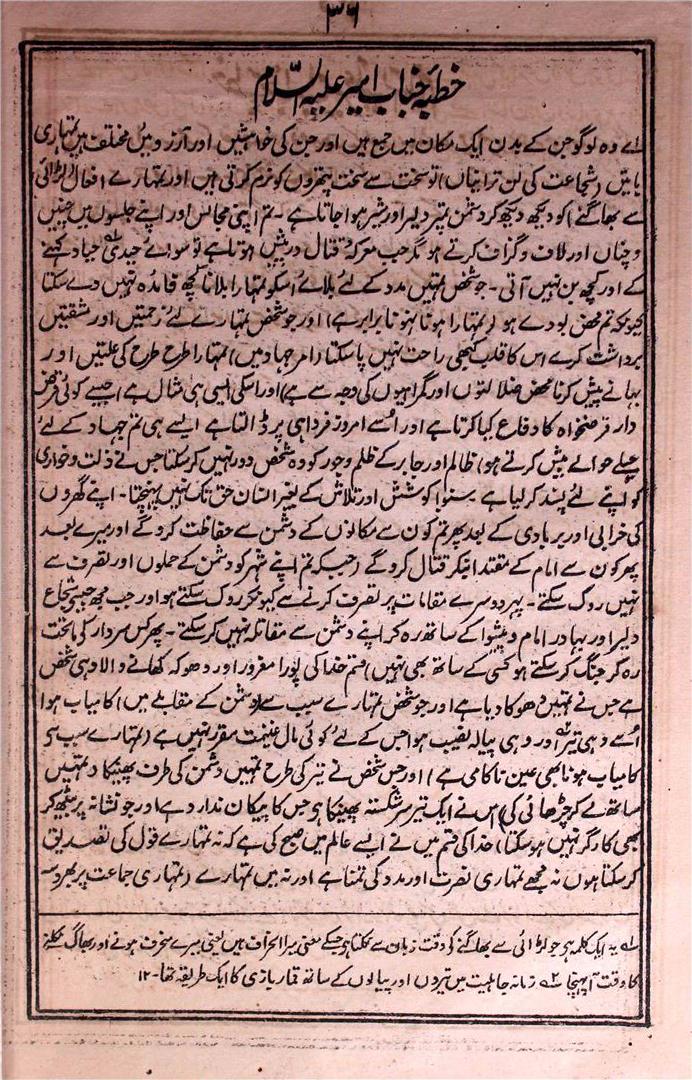 ۳۶
خطبۂ جناب امیر علیہ السّلام
اے وہ لوگو جن کے بدن ایک مکان میں جمع ہیں اور جن کی خواہشیں اور آرزوئیں مختلف ہیں تمہاری
باتیں (شجاعت کی لن ترانیاں) تو سخت سے سخت پتھروں کو نرم کرتی ہیں اور تمہارے افعال (لڑائی
سے بھاگنے) کو دیکھ دیکھ کر دشمن تمپر دلیر اور شیر ہوا جاتا ہے۔ تم اپنی مجالس اور اپنے جلسوں میں چنیں
و چناں اور لاف و گزاف کرتے ہو مگر جب معرکۂ قتال درپیش ہوتا ہے تو سوائے حیدی ۱؎ حیاد کہنے
کے اور کچھ بن نہیں آتی۔ جو شخص تمہیں مدد کے لئے بلائے اسکو تمہارا بلانا کچھ فائدہ نہیں دے سکتا
کیونکہ تم محض بودے ہو (تمہارا ہونا نہونا برابر ہے) اور جو شخص تمہارے لئے زحمتیں اور مشقتیں
برداشت کرے اس کا قلب کبھی راحت نہیں پا سکتا (امر جہاد میں) تمہارا طرح طرح کی علتیں اور
بہانے پیش کرنا محض ضلالتوں اور گمراہیوں کی وجہ سے ہے) اور اسکی ایسی ہی مثال ہے (جیسے کوئی قرض
دار قرضخواہ کا دفاع کیا کرتا ہے اور اُسے امروز فردا ہی پر ڈالتا ہے ایسے ہی تم جہاد کے لئے
حیلے حوالے پیش کرتے ہو) ظالم اور جابر کے ظلم و جور کو وہ شخص دور نہیں کر سکتا جس نے ذلت و خواری
کو اپنے لئے پسند کر لیا ہے سنو! کوشش اور تلاش کے بغیر انسان حق تک نہیں پہنچتا۔ اپنے گھروں
کی خرابی اور بربادی کے بعد پھر تم کون سے مکانوں کے دشمن سے حفاظت کروگے اور میرے بعد
پھر کون سے امام کے مقتدا بنکر قتال کروگے (جبکہ تم اپنے شہر کو دشمن کے حملوں اور تصرف سے
نہیں روک سکتے۔ پھر دوسرے مقامات پر تصرف کرنے سے کیونکر روک سکتے ہو اور جب مجھ جیسے شجاع
دلیر اور بہادر امام و پیشوا کے ساتھ رہ کر اپنے دشمن سے مقاتلہ نہیں کر سکتے۔ پھر کس سردار کی ماتحت
رہ کر جنگ کر سکتے ہو کسی کے ساتھ بھی نہیں) قسم خدا کی پورا مغرور اور دھوکہ کھانے والا وہی شخص
ہے جس نے تمہیں دھوکا دیا ہے اور جو شخص تمہارے سبب سے (دشمن کے مقابلے میں) کامیاب ہوا
اُسے وہی تیر ۲؎ اور وہی پیالہ نصیب ہوا جس کے لئے کوئی مال غنیمت مقرر نہیں ہے (تمہارے سبب سے
کامیاب ہونا بھی عین ناکامی ہے) اور جس شخص نے تیر کی طرح تمہیں دشمن کی طرف پھینکا (تمہیں
ساتھ لے کر چڑھائی کی) اس نے ایک تیر سر شکستہ پھینکا ہے جس کا پیکان ندارد ہے اور جو نشانہ پر بیٹھ کر
بھی کارگر نہیں ہو سکتا) خدا کی قسم میں نے ایسے عالم میں صبح کی ہے کہ نہ تمہارے قول کی تصدیق
کر سکتا ہوں نہ مجھے تمہاری نصرت اور مدد کی تمنا ہے اور نہ میں تمہارے (تمہاری جماعت پر بھروسہ
۱؎ یہ ایک کلمہ ہے جو لڑائی سے بھاگنے کی وقت زبان سے نکلتا ہے جسکے معنی میرا انحراف ہیں یعنی میرے منحرف ہونے اور بھاگ نکلنے
کا وقت آ پہنچا ۲؎ زمانہ جاہلیت میں تیروں اور پیالوں کے ساتھ قمار بازی کا ایک طریقہ تھا۔ ۱۲